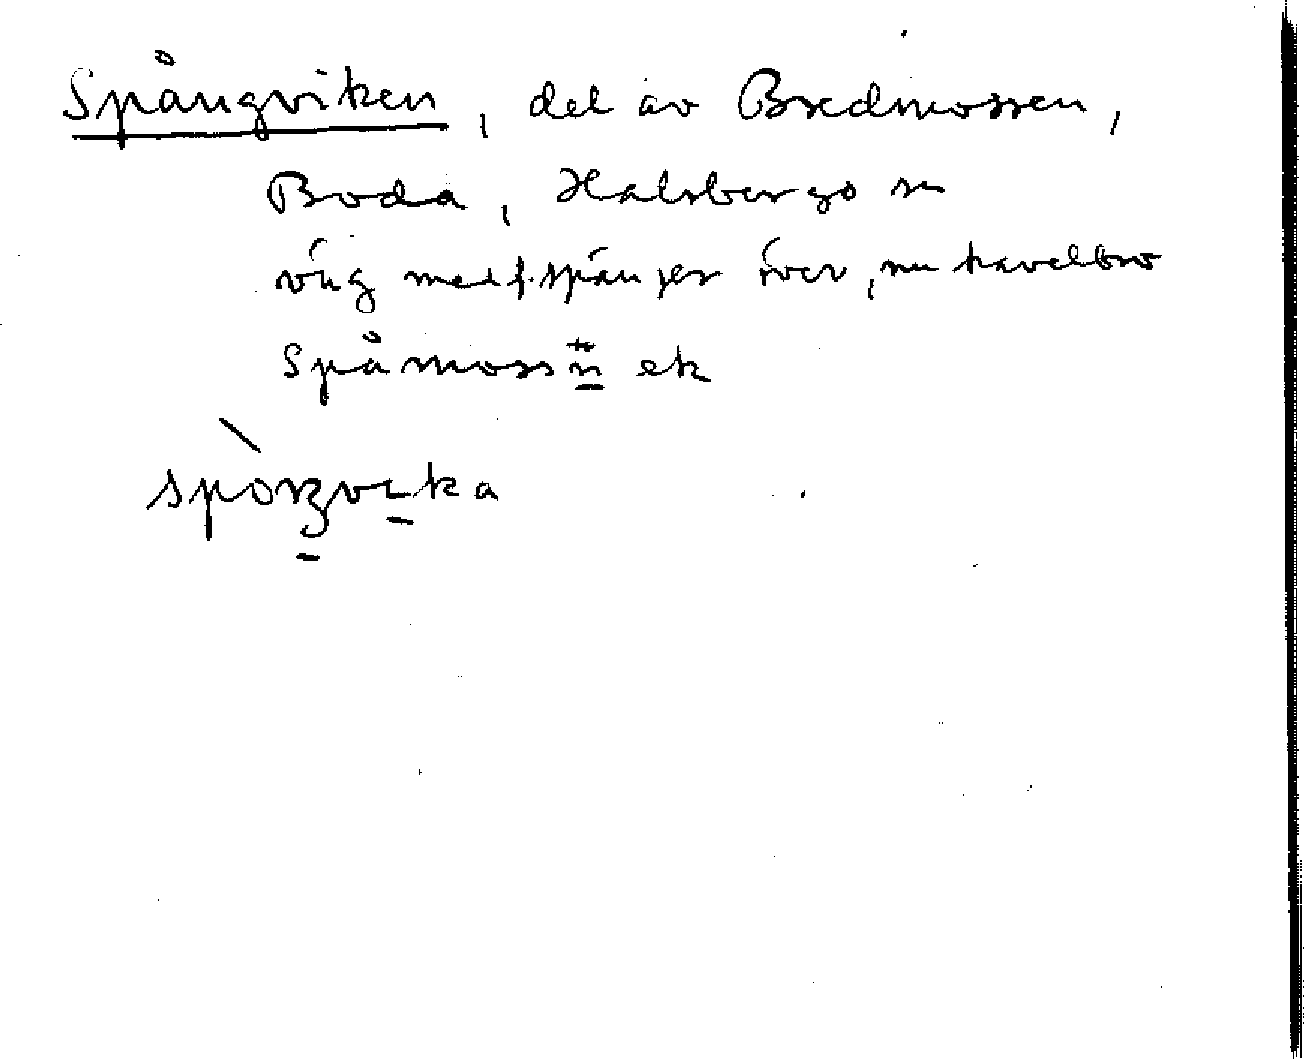 Spångviken, del av Bredmossen,
Boda, Halsbergs sn
väg med f. spänger över, nu kavelbro
Spåmoss ek